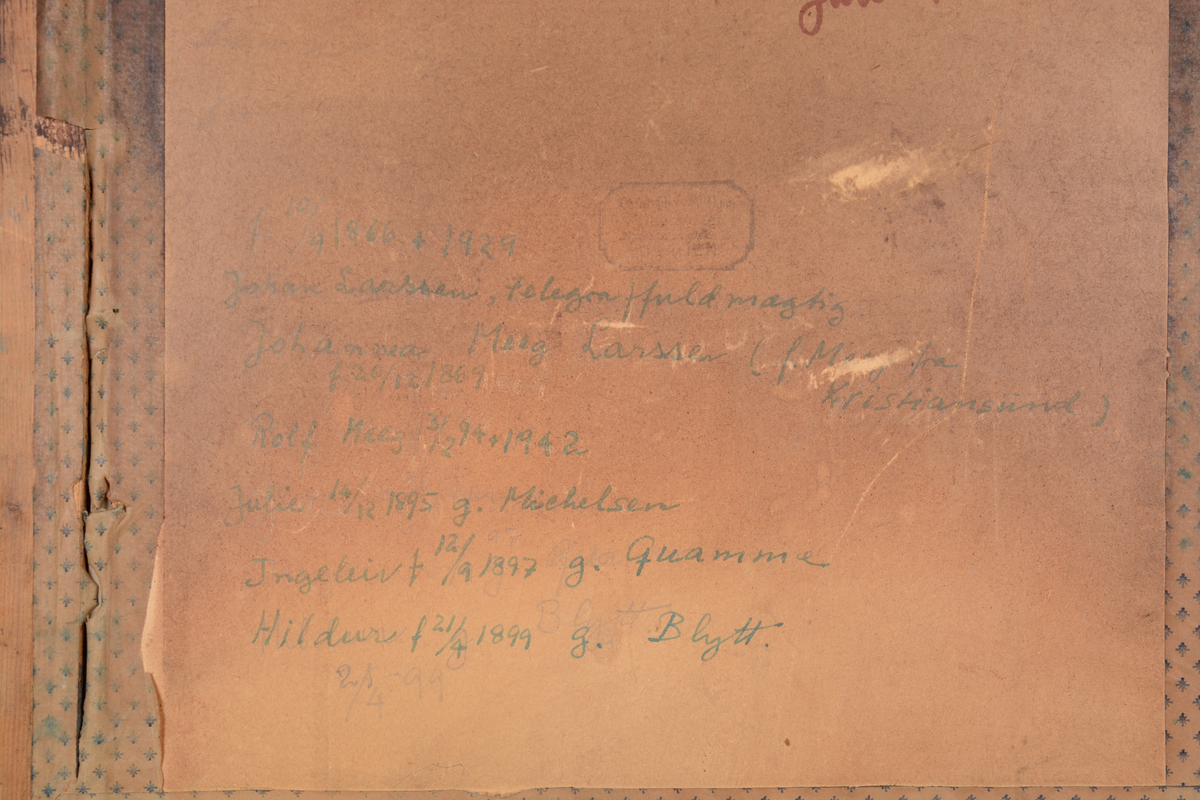 f 10/9 1866 + 1929
Johan Larssen, telegraffuldmægtig
Johanna Meeg Larssen (f. Meeg fra
Kristiansund)
f 26/12 1869
Rolf Meeg 3/2 94 + 1942
Julie 14/12 1895 g. Michelsen
Ingeleiv f 12/9 1897 g. Quamme
Hildur f 21/4 1899 g. Blytt.
Blytt
21/4 -99